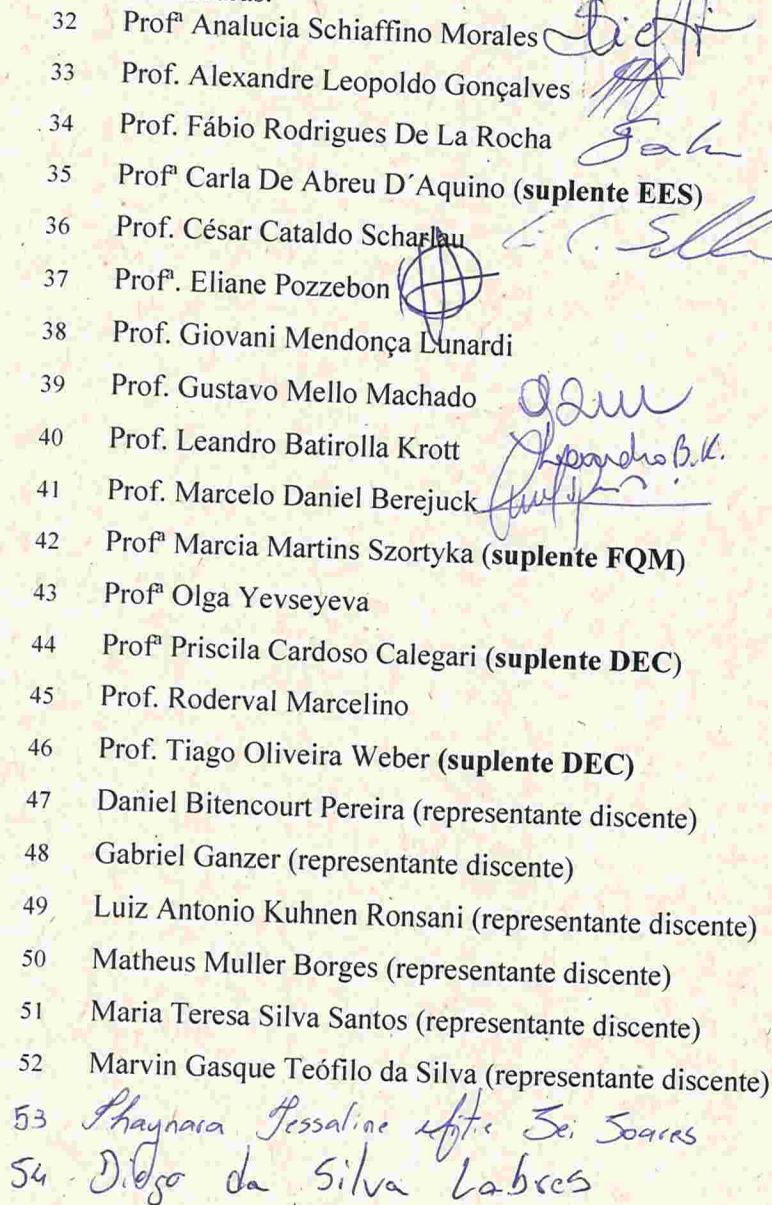 32 Profª Analucia Schiaffino Morales
33 Prof. Alexandre Leopoldo Gonçalves
34 Prof. Fábio Rodrigues De La Rocha
35 Profª Carla De Abreu D´Aquino (suplente EES)
36 Prof. César Cataldo Scharlau
37 Profª. Eliane Pozzebon
38 Prof. Giovani Mendonça Lunardi
39 Prof. Gustavo Mello Machado
40 Prof. Leandro Batirolla Krott B.K.
41 Prof. Marcelo Daniel Berejuck
42 Profª Marcia Martins Szortyka (suplente FQM)
43 Profª Olga Yevseyeva
44 Profª Priscila Cardoso Calegari (suplente DEC)
45 Prof. Roderval Marcelino
46 Prof. Tiago Oliveira Weber (suplente DEC)
47 Daniel Bitencourt Pereira (representante discente)
48 Gabriel Ganzer (representante discente)
49 Luiz Antonio Kuhnen Ronsani (representante discente)
50 Matheus Muller Borges (representante discente)
51 Maria Teresa Silva Santos (representante discente)
52 Marvin Gasque Teófilo da Silva (representante discente)
53 Soares
54 Diogo da Silva Labres